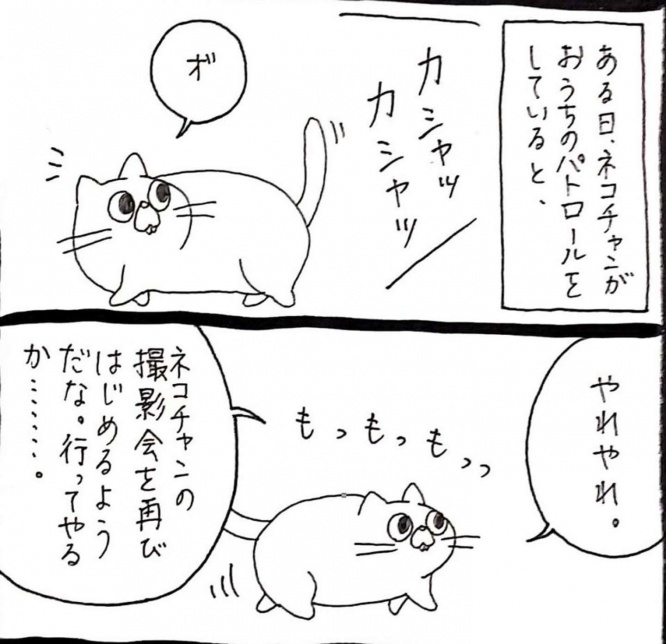 ある日、ネコチャンが
おうちのパトロールを
していると、
カシャッ
カシャッ
オ
やれやれ。
もっもっもっっ
ネコチャンの
撮影会を再び
はじめるよう
だな。行ってやる
か・・・・・・・。